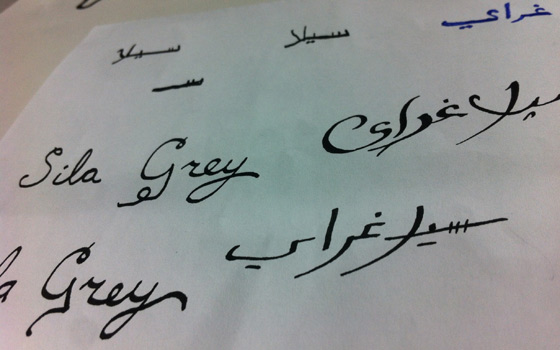 غراي
سيلا
سيلا
سـ
سيلا غراي
Sila Grey
سيلا غراي
Grey